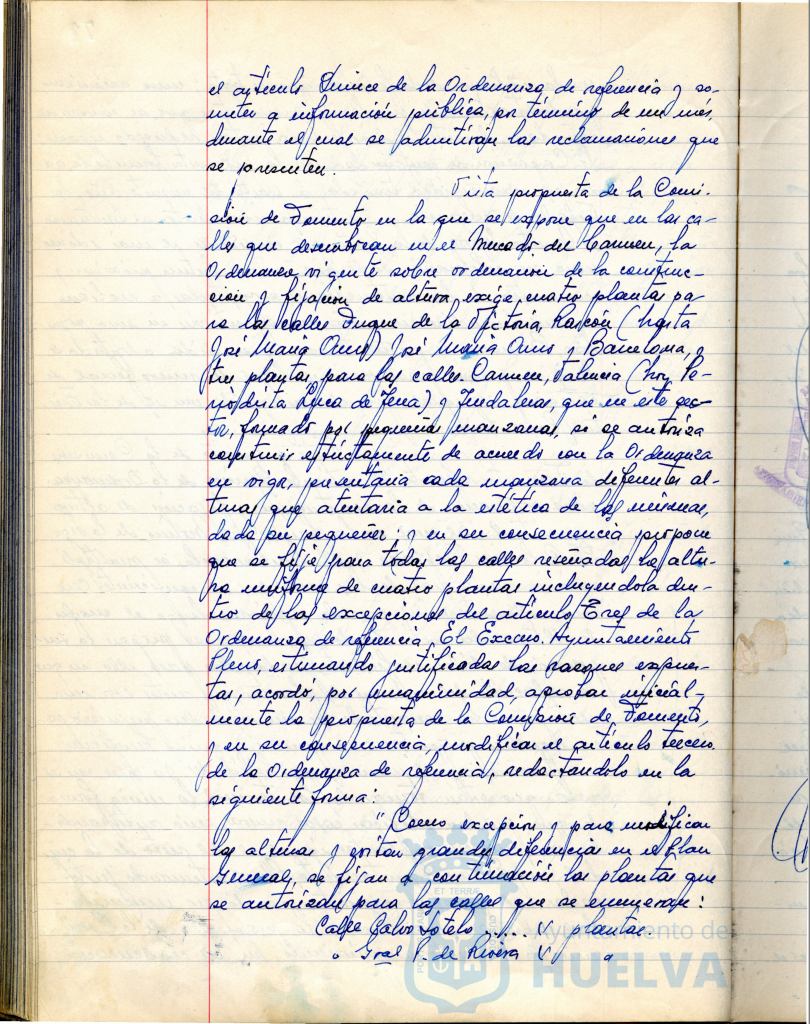 el artículo Quince de la Ordenanza de referencia y so-
meter a información pública, por término de un mes,
durante el cual se admitirán las reclamaciones que
se presenten.
Vista propuesta de la Comi-
sión de Fomento en la que se expone que en las ca-
lles que desembocan en el Mercado del Carmen, la
Ordenanza vigente sobre ordenación de la construc-
ción y fijación de altura exige, cuatro plantas pa-
ra las calles Duque de la Victoria, Rascón (hasta
José María Amo) José María Amo y Barcelona, y
tres plantas para las calles Carmen, Valencia (hoy Pe-
riodista Luca de Tena) y Tendaleras, que en este sec-
tor, formado por pequeñas manzanas, si se autoriza
construir estrictamente de acuerdo con la Ordenanza
en vigor, presentaría cada manzana diferentes al-
turas que atentaría a la estética de las mismas,
dada su pequeñez; y en su consecuencia propone
que se fije para todas las calles reseñadas la altu-
ra uniforme de cuatro plantas incluyendola den-
tro de las excepciones del artículo Tres de la
Ordenanza de referencia. El Excmo. Ayuntamiento
Pleno, estimando justificadas las razones expues-
tas, acordó, por unanimidad, aprobar inicial-
mente la propuesta de la Comisión de Fomento,
y en su consecuencia, modificar el artículo tercero
de la Ordenanza de referencia, redactandolo en la
siguiente forma:
"Como excepción y para modificar
las alturas y evitar grandes diferencias en el Plan
General, se fijan a continuación las plantas que
se autorizan para las calles que se enumeran:
Calle Calvo Sotelo ..... V plantas
" Gral P. de Rivera V "
Ayuntamiento de
HUELVA